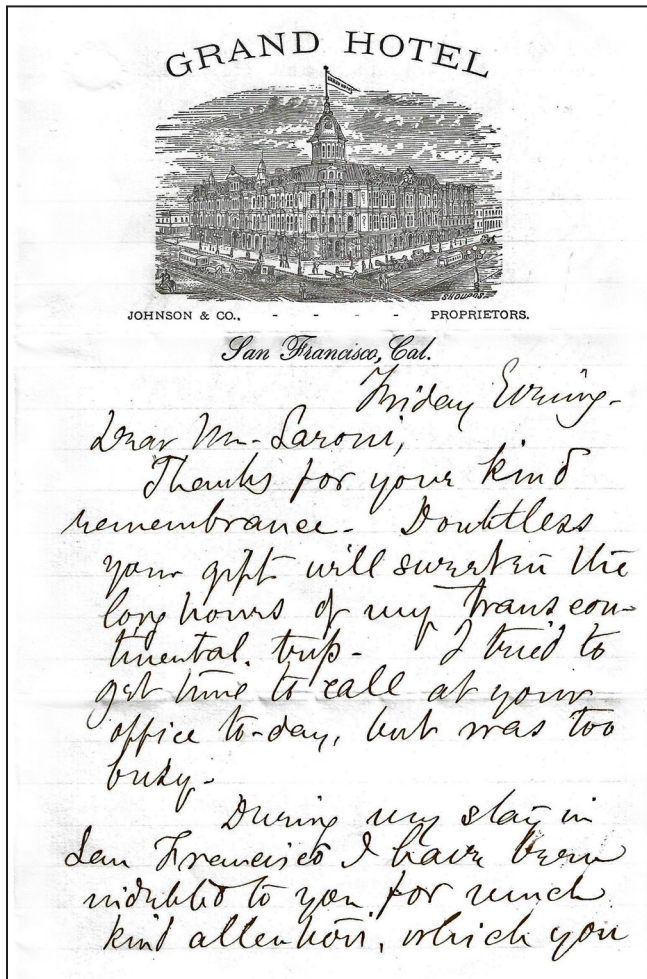 GRAND HOTEL
GRAND HOTEL
JOHNSON & CO., - - - - PROPRIETORS.
San Francisco, Cal.
Friday Evening-
Dear Mr- Saroni,
Thanks for your kind
remembrance- Doubtless
your gift will sweeten the
long hours of my transcon-
tinental. trip- I tried to
get time to call at your
office to-day, but was too
busy-
During my stay in
San Francisco I have been
indebted to you for much
kind attention, which you